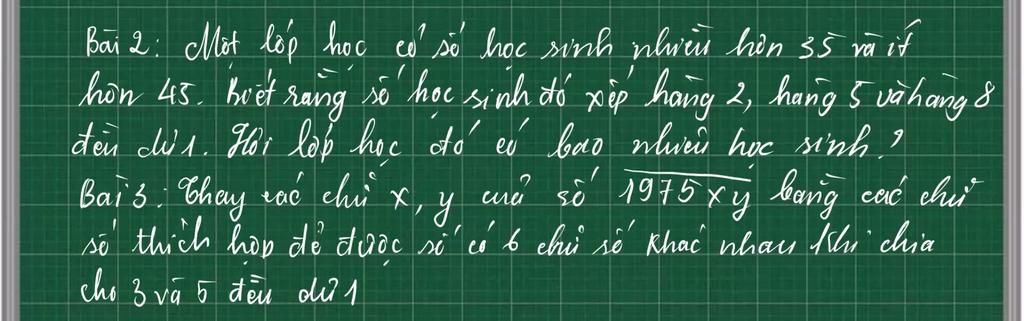 Bài 2: Một lớp học có số học sinh nhiều hơn 35 và ít
hơn 45. Biết rằng số học sinh đó xếp hàng 2, hàng 5 và hàng 8
đều dư 1. Hỏi lớp học đó có bao nhiêu học sinh?
Bài 3: Thay các chữ x, y của số 1975xy bằng các chữ
số thích hợp để được số có 6 chữ số khác nhau khi chia
cho 3 và 5 đều dư 1